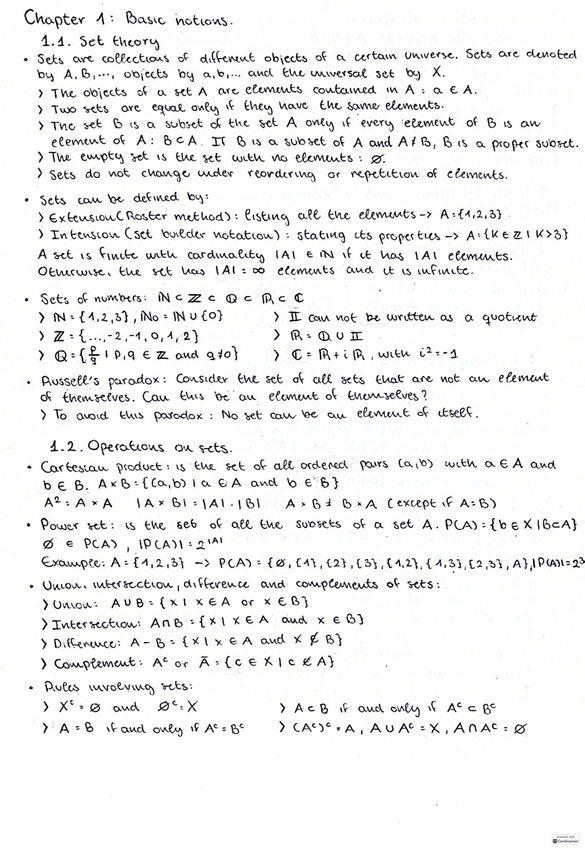 Chapter 1: Basic notions.
1.1. Set theory
• Sets are collections of different objects of a certain universe. Sets are denoted
by A, B, ..., objects by a, b, ... and the universal set by X.
> The objects of a set A are elements contained in A: a ∈ A.
> Two sets are equal only if they have the same elements.
> The set B is a subset of the set A only if every element of B is an
element of A: B⊂A. If B is a subset of A and A≠B, B is a proper subset.
> The empty set is the set with no elements: ∅.
> Sets do not change under reordering or repetition of elements.
• Sets can be defined by:
> Extension (Roster method): listing all the elements -> A={1,2,3}
> Intension (set builder notation): stating its properties -> A={K∈ℤ | K>3}
A set is finite with cardinality |A| ∈ ℕ if it has |A| elements.
Otherwise, the set has |A| = ∞ elements and it is infinite.
• Sets of numbers: ℕ ⊂ ℤ ⊂ ℚ ⊂ ℝ ⊂ ℂ
> ℕ = {1,2,3}, ℕ0 = ℕ ∪ {0} > 𝕀 can not be written as a quotient
> ℤ = {...,-2,-1,0,1,2} > ℝ = ℚ ∪ 𝕀
> ℚ = {p/q | p,q ∈ ℤ and q≠0} > ℂ = ℝ + i ℝ, with i² = -1
• Russell's paradox: Consider the set of all sets that are not an element
of themselves. Can this be an element of themselves?
> To avoid this paradox: No set can be an element of itself.
1.2. Operations on sets.
• Cartesian product: is the set of all ordered pairs (a,b) with a ∈ A and
b ∈ B. A×B = {(a,b) | a ∈ A and b ∈ B}
A² = A × A |A × B| = |A| · |B| A × B ≠ B × A (except if A=B)
• Power set: is the set of all the subsets of a set A. P(A) = {b ∈ X | B⊂A}
∅ ∈ P(A), |P(A)| = 2^|A|
Example: A = {1,2,3} -> P(A) = {∅, {1}, {2}, {3}, {1,2}, {1,3}, {2,3}, A}, |P(A)| = 2³
• Union, intersection, difference and complements of sets:
> Union: A∪B = {x | x ∈ A or x ∈ B}
> Intersection: A∩B = {x | x ∈ A and x ∈ B}
> Difference: A - B = {x | x ∈ A and x ∉ B}
> Complement: Aᶜ or Ā = {c ∈ X | c ∉ A}
• Rules involving sets:
> Xᶜ = ∅ and ∅ᶜ = X > A⊂B if and only if Aᶜ ⊂ Bᶜ
> A = B if and only if Aᶜ = Bᶜ > (Aᶜ)ᶜ = A, A ∪ Aᶜ = X, A ∩ Aᶜ = ∅
CamScanner